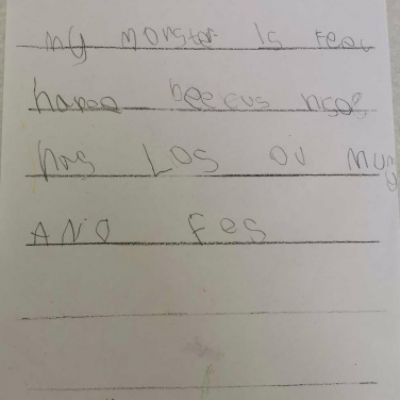 my monster is feeu
hapee beecus
has LOS OU muny
AND fes